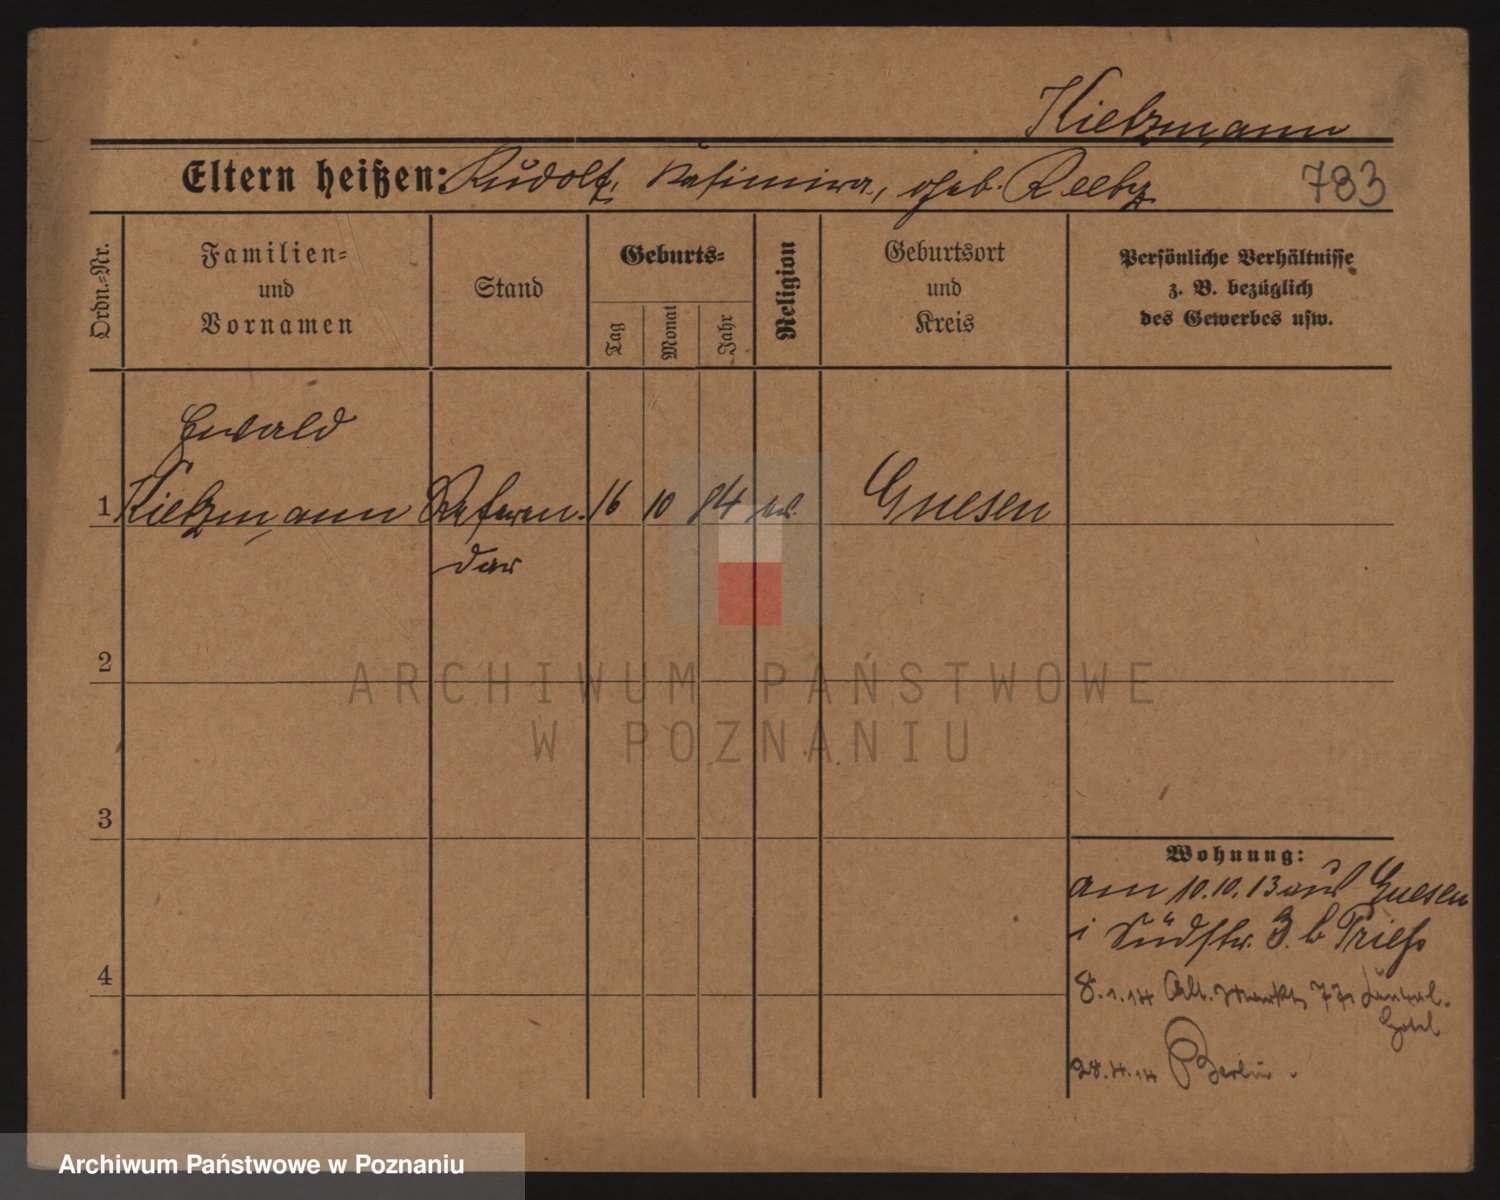 Kietzmann
Eltern heißen: Rudolf, Kasimira, geb. Reetz
783
Ordn.=Nr.
Familien=
und
Vornamen
Stand
Geburts=
Tag
Monat
Jahr
Religion
Geburtsort
und
Kreis
Persönliche Verhältnisse
z. B. bezüglich
des Gewerbes usw.
Ewald
1 Kietzmann Referen- 16 10 84 ev. Gnesen
dar
2
3
4
Wohnung:
am 10.10.13 aus Gnesen
Südstr. 3. b
8.1.14 Alt. Markt
Hotel
28.4.14 Berlin.
ARCHIWUM PAŃSTWOWE
W POZNANIU
Archiwum Państwowe w Poznaniu